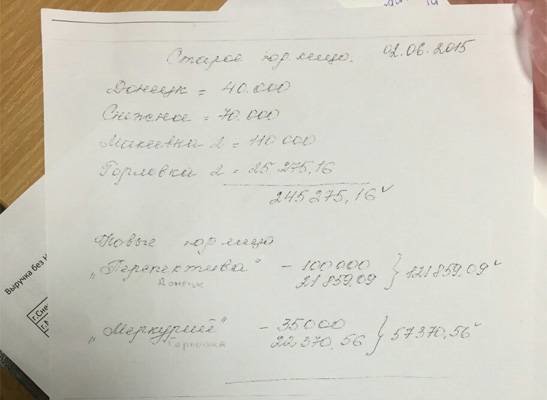 Старое юр. лицо. 02.06.2015
Донецк = 40.000
Снежное = 70.000
Макеевка 2 = 110 000
Горловка 2 = 25 275,16
245 275,16
Новые юр. лица
„Перспектива" - 100 000
Донецк 21 859,09 } 121 859,09
„Меркурий" - 35 000
Горловка 22 370,56 } 57 370,56
Выручка без
г.Сне